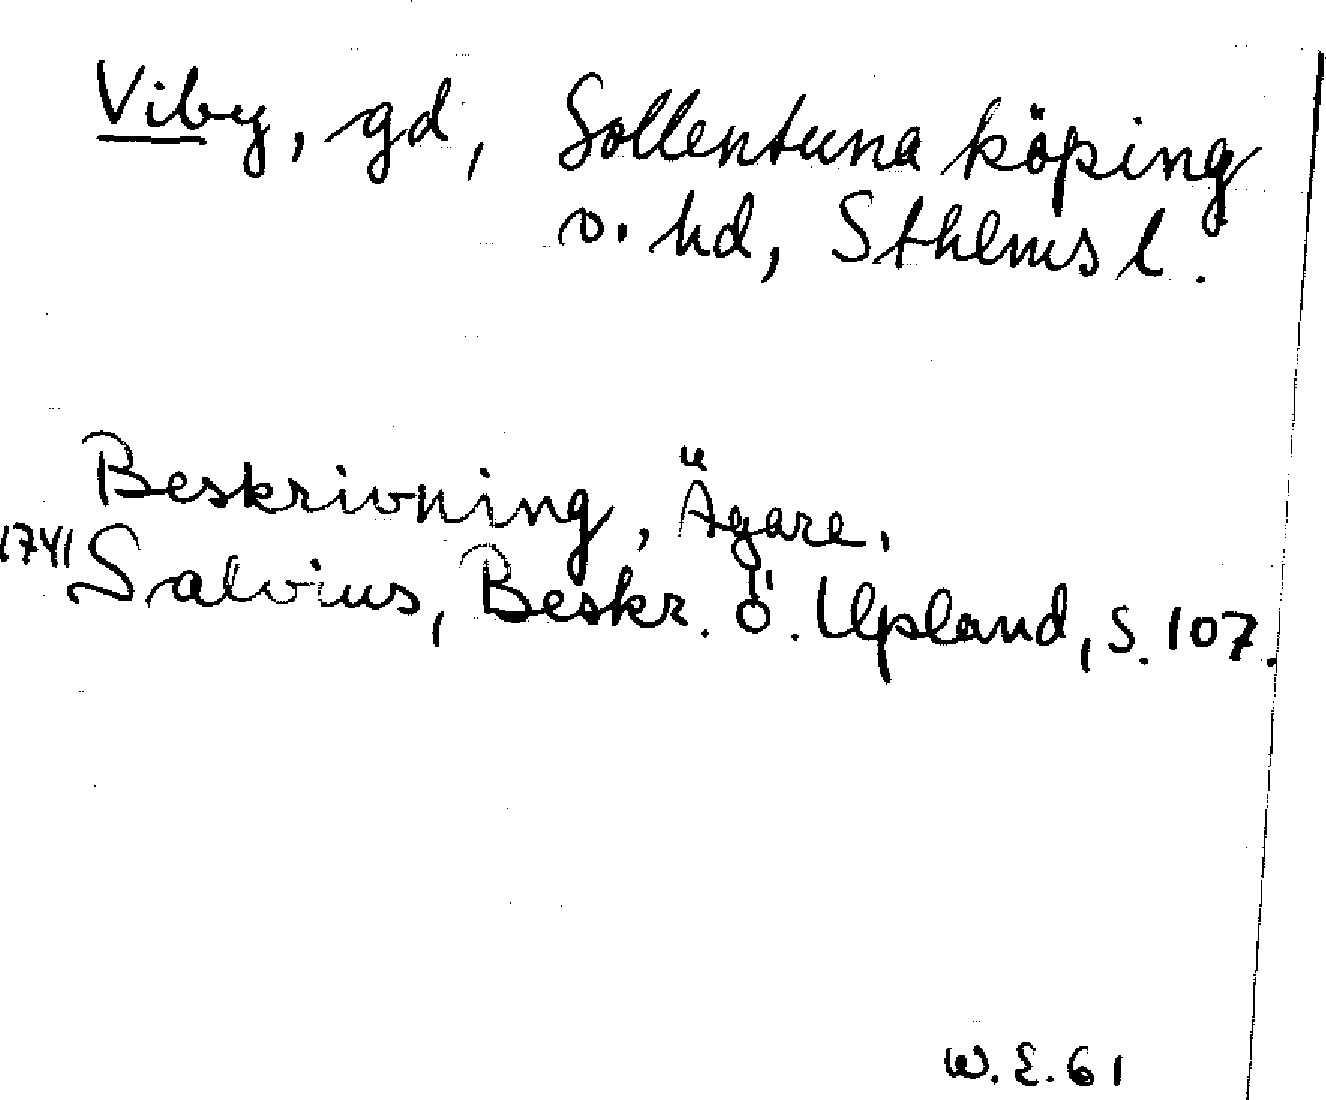 Viby, gd, Sollentuna köping
o. hd, Sthlms l.
Beskrivning, Ägare.
1741 Salvius, Beskr. ö. Upland, s. 107.
W. E. 61